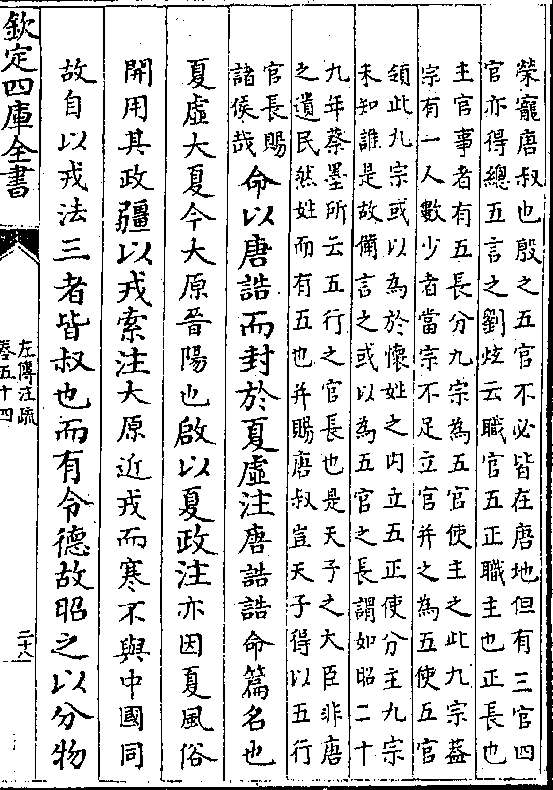 榮寵唐叔也殷之五官不必皆在唐地但有三官四
官亦得總五言之劉炫云職官五正職主也正長也
主官事者有五長分九宗為五官使主之此九宗蓋
宗有一人數少者當宗不足立官并之為五使五官
領此九宗或以為於懷姓之内立五正使分主九宗
未知誰是故備言之或以為五官之長謂如昭二十
九年蔡墨所云五行之官長也是天子之大臣非唐
之遺民然姓而有五也并賜唐叔豈天子得以五行
官長賜
諸侯哉
命以唐誥而封於夏虛注唐誥誥命篇名也
夏虛大夏今大原晉陽也啟以夏政注亦因夏風俗
開用其政疆以戎索注大原近戎而寒不與中國同
故自以戎法三者皆叔也而有令德故昭之以分物
欽定四庫全書
左傳注疏
卷五十四
二十八